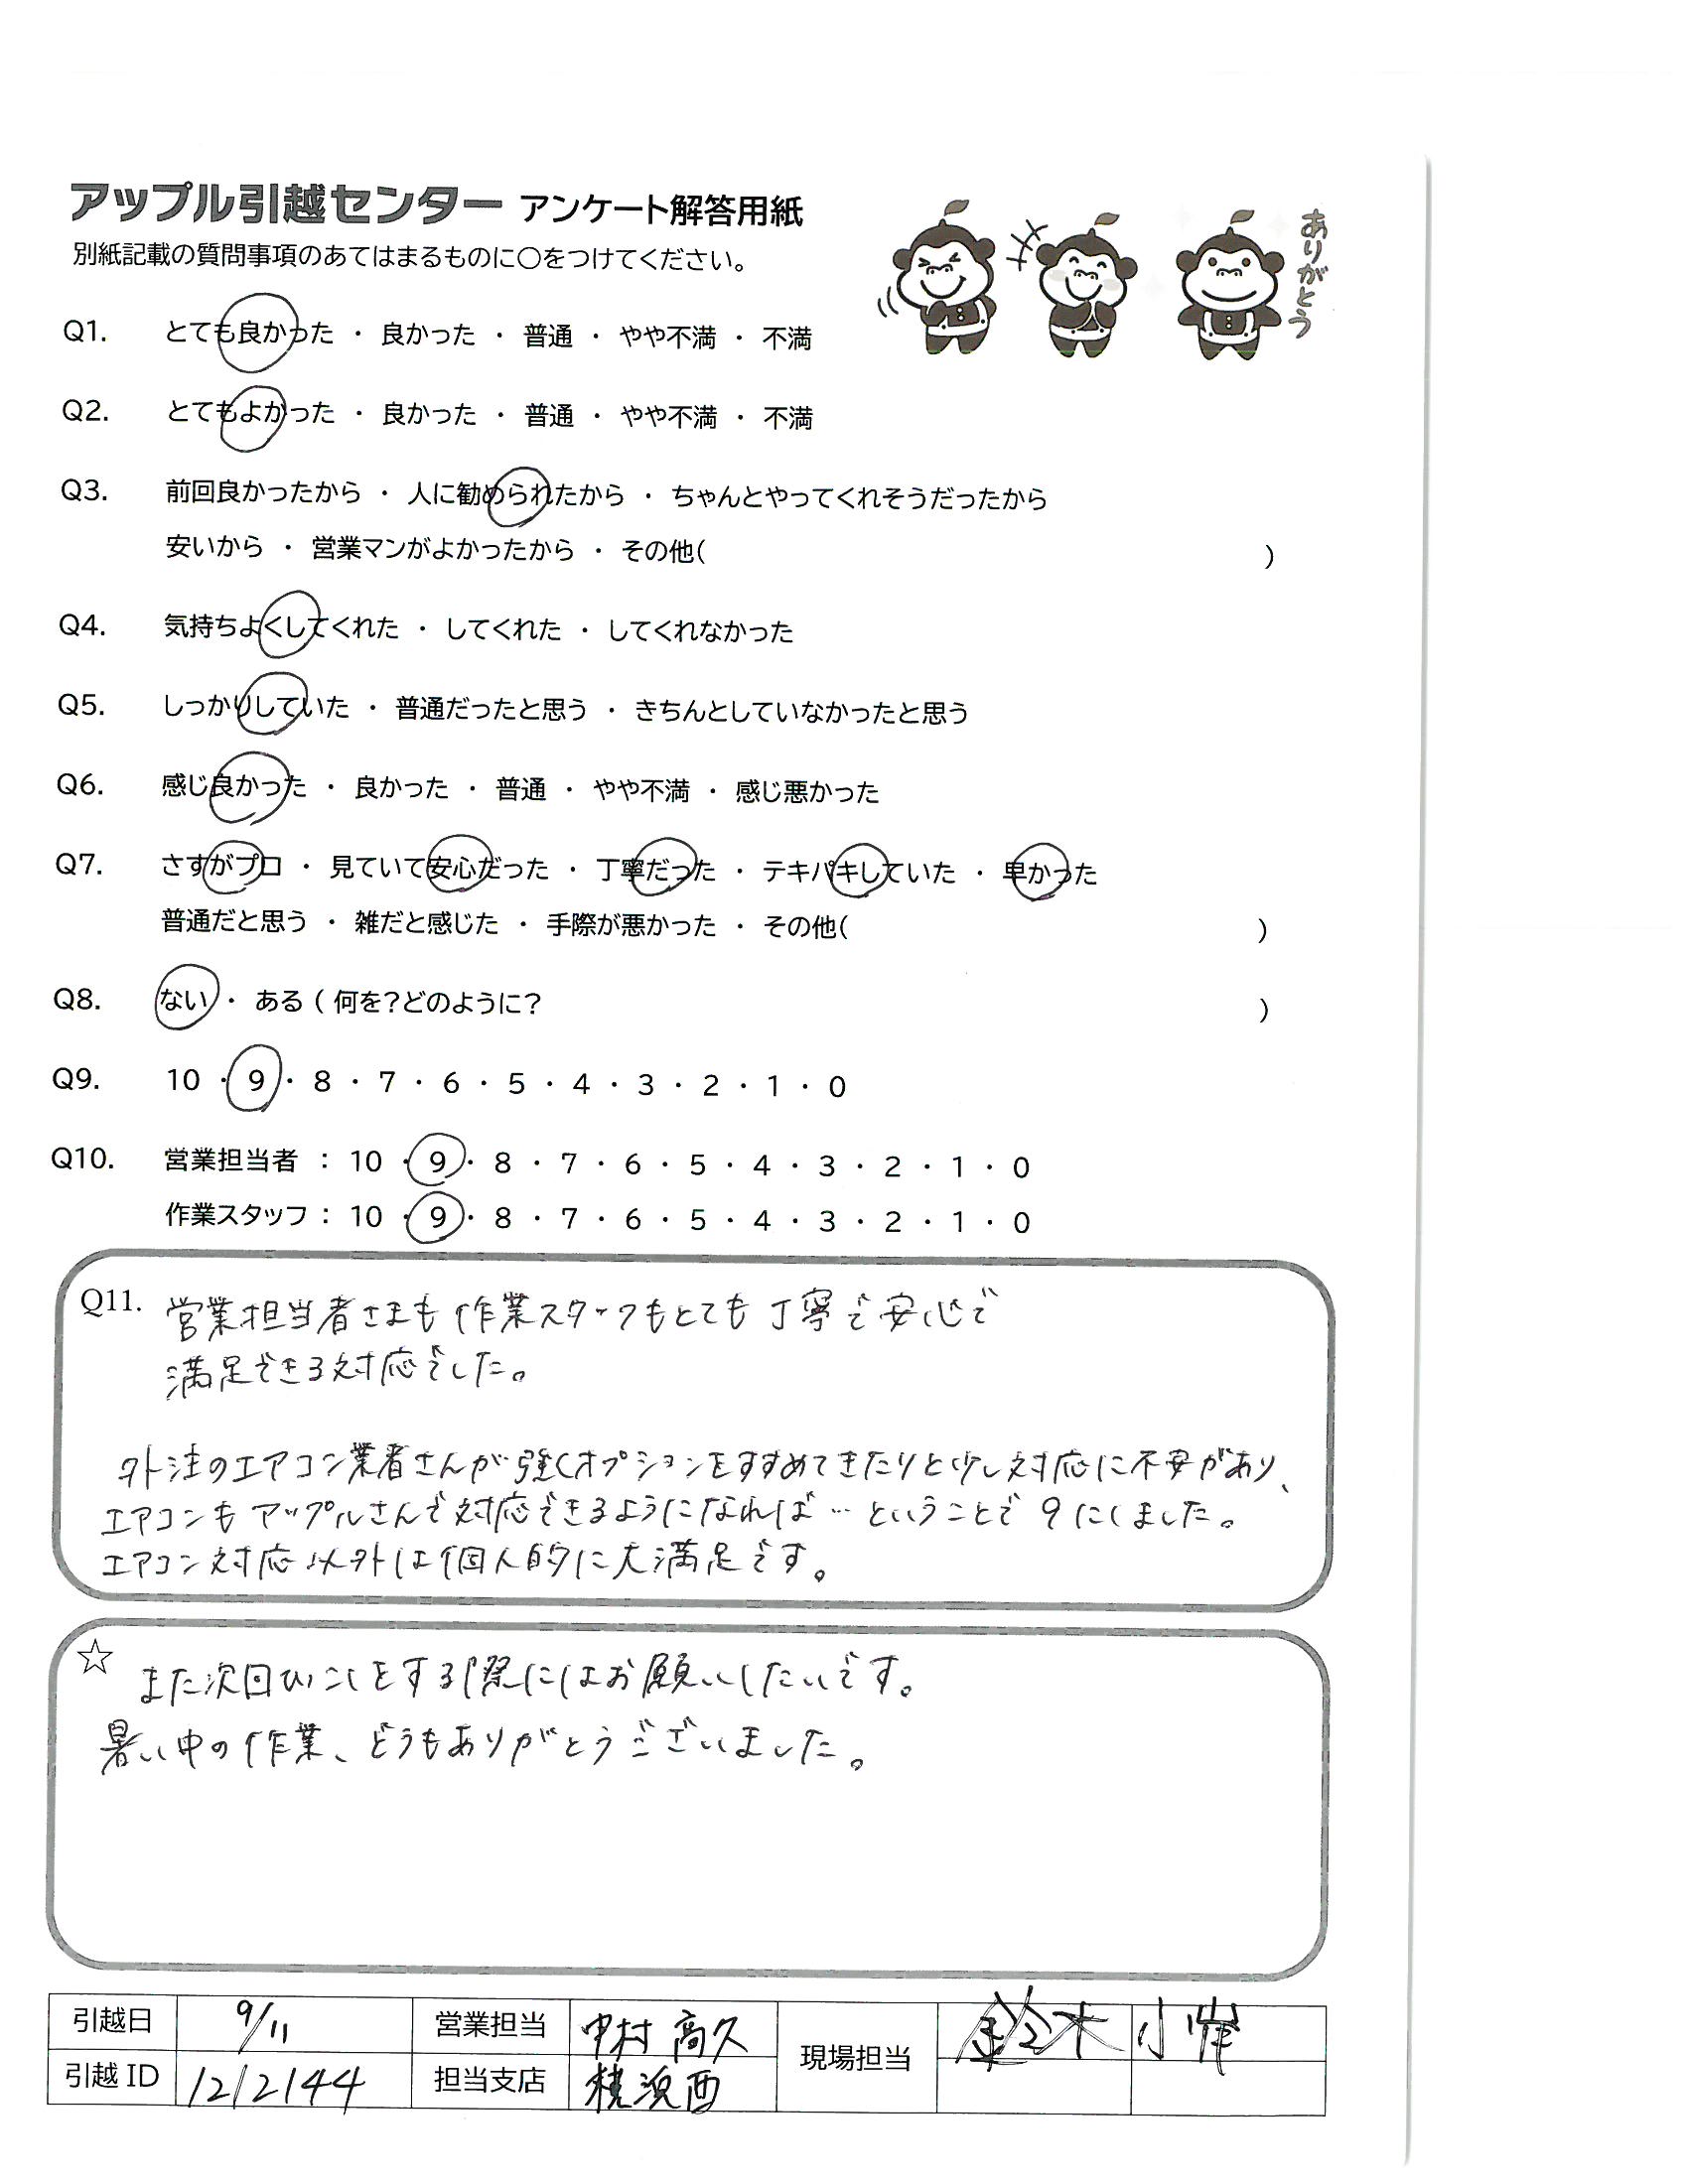 アップル引越センター アンケート解答用紙
ありがとう
別紙記載の質問事項のあてはまるものに〇をつけてください。
Q1. とても良かった ・ 良かった ・ 普通 ・ やや不満 ・ 不満
Q2. とてもよかった ・ 良かった ・ 普通 ・ やや不満 ・ 不満
Q3. 前回良かったから ・ 人に勧められたから ・ ちゃんとやってくれそうだったから
安いから ・ 営業マンがよかったから ・ その他( )
Q4. 気持ちよくしてくれた ・ してくれた ・ してくれなかった
Q5. しっかりしていた ・ 普通だったと思う ・ きちんとしていなかったと思う
Q6. 感じ良かった ・ 良かった ・ 普通 ・ やや不満 ・ 感じ悪かった
Q7. さすがプロ ・ 見ていて安心だった ・ 丁寧だった ・ テキパキしていた ・ 早かった
普通だと思う ・ 雑だと感じた ・ 手際が悪かった ・ その他( )
Q8. ない ・ ある ( 何を?どのように? )
Q9. 10 ・ 9 ・ 8 ・ 7 ・ 6 ・ 5 ・ 4 ・ 3 ・ 2 ・ 1 ・ 0
Q10. 営業担当者 : 10 ・ 9 ・ 8 ・ 7 ・ 6 ・ 5 ・ 4 ・ 3 ・ 2 ・ 1 ・ 0
作業スタッフ : 10 ・ 9 ・ 8 ・ 7 ・ 6 ・ 5 ・ 4 ・ 3 ・ 2 ・ 1 ・ 0
Q11. 営業担当者さまも作業スタッフもとても丁寧で安心で
満足できる対応でした。
外注のエアコン業者さんが強くオプションをすすめてきたりと少し対応に不安があり、
エアコンもアップルさんで対応できるようになれば…ということで9にしました。
エアコン対応以外は個人的に大満足です。
☆ また次回ひっこしをする際にはお願いしたいです。
暑い中の作業、どうもありがとうございました。
引越日 9/11 営業担当 中村 高久 現場担当 鈴木 小岸
引越ID 1212144 担当支店 横浜西